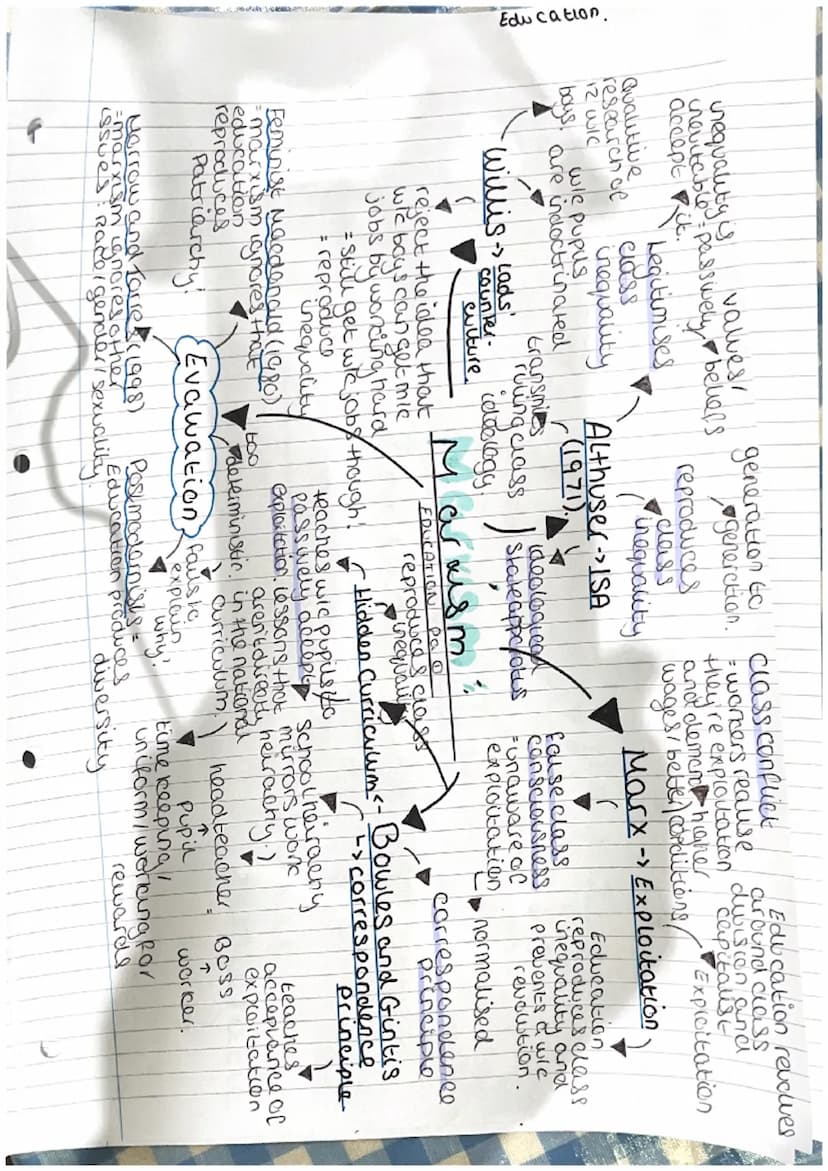 Education.
Marxism:
EDUCATION P&O
Marx → Exploitation
Education revolves
around class
division and
capitalist
Exploitation
class conflict
= workers realise
they're exploitation
and demand higher
wages/better conditions
false class
consciousness
= unaware of
exploitation
↳ normalised
Education
reproduces class
inequality and
prevents a w/c
revolution.
Althuser → ISA
(1971)
ideological
State apparatus
transmits
ruling class
ideology.
reproduces
class
inequality
generation to
generation.
Legitimises
class
inequality
values/
beliefs
inequality is
inevitable = passively
accept it.
Willis → Lads'
counter-
culture.
Qualitive
research of
12 w/c
boys.
w/c pupils
are indoctrinated
reject the idea that
w/c boys can get m/c
jobs by working hard
= still get w/c jobs though!
= reproduce
inequality
Bowles and Gintis
↳ correspondence
principle
correspondence
principle
teaches
acceptance of
exploitation
school heirachy
mirrors work
heirachy.
headteacher = Boss
↑ ↑
pupil worker.
time keeping/
uniform/working for
rewards
Hidden Curriculum
reproduces class
inequality
teaches w/c pupils to
passively accept
exploitation.
(lessons that
aren't directly
in the national
curriculum.)
Evaluation
too
deterministic.
fails to
explain
why!
Feminist Macdonald (1980)
= marxism ignores that
education
reproduces
Patriarchy!
Morrow and Torres (1998)
= marxism ignores other
issues: Race/gender/sexuality.
Postmodernists =
Education produces
diversity